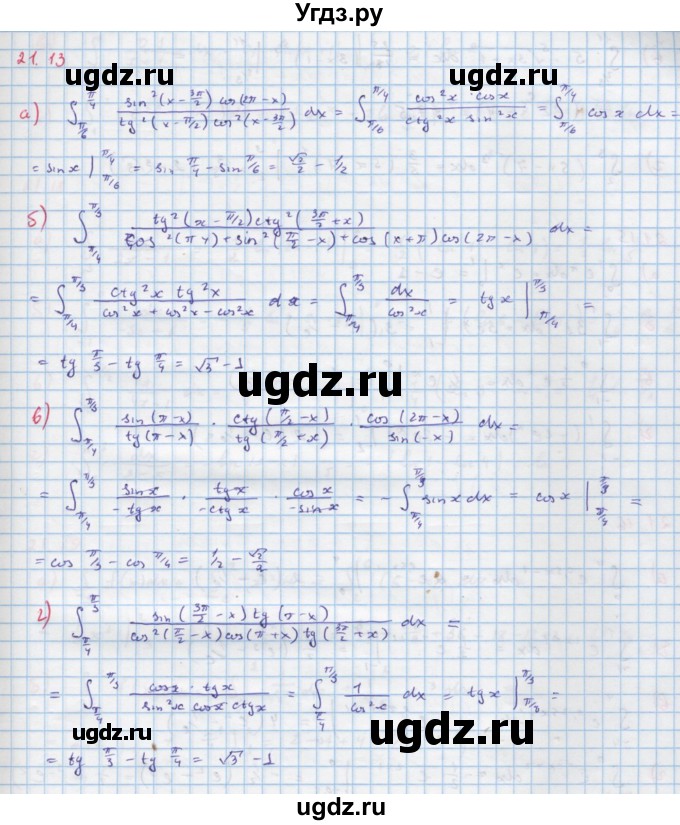 Угдз.ру
21.13
а) ∫_{π/6}^{π/4} sin²(x − 3π/2) cos(2π − x) / tg²(x − π/2) cos²(x − 3π/2) dx = ∫_{π/6}^{π/4} cos²x · cosx / ctg²x sin²x = ∫_{π/6}^{π/4} cosx dx =
= sinx |_{π/6}^{π/4} = sin π/4 − sin π/6 = √2/2 − 1/2
б) ∫_{π/4}^{π/3} tg²(x − π/2) ctg²(3π/2 + x) / cos²(π + x) + sin²(π/2 − x) + cos(x + π) cos(2π − x) dx =
= ∫_{π/4}^{π/3} ctg²x tg²x / cos²x + cos²x − cos²x dx = ∫_{π/4}^{π/3} dx / cos²x = tgx |_{π/4}^{π/3} =
= tg π/3 − tg π/4 = √3 − 1
в) ∫_{π/4}^{π/3} sin(π − x) / tg(π − x) · ctg(π/2 − x) / tg(π/2 + x) · cos(2π − x) / sin(−x) dx =
= ∫_{π/4}^{π/3} sinx / −tgx · tgx / −ctgx · cosx / −sinx = − ∫_{π/4}^{π/3} sinx dx = cosx |_{π/4}^{π/3} =
= cos π/3 − cos π/4 = 1/2 − √2/2
г) ∫_{π/4}^{π/3} sin(3π/2 − x) tg(π − x) / cos²(π/2 − x) cos(π + x) tg(3π/2 + x) dx =
= ∫_{π/4}^{π/3} cosx · tgx / sin²x cosx ctgx = ∫_{π/4}^{π/3} 1 / cos²x dx = tgx |_{π/3}^{π/3} =
= tg π/3 − tg π/4 = √3 − 1
ugdz.ru
ugdz.ru
ugdz.ru
ugdz.ru
ugdz.ru
ugdz.ru
ugdz.ru
ugdz.ru
ugdz.ru
ugdz.ru
ugdz.ru